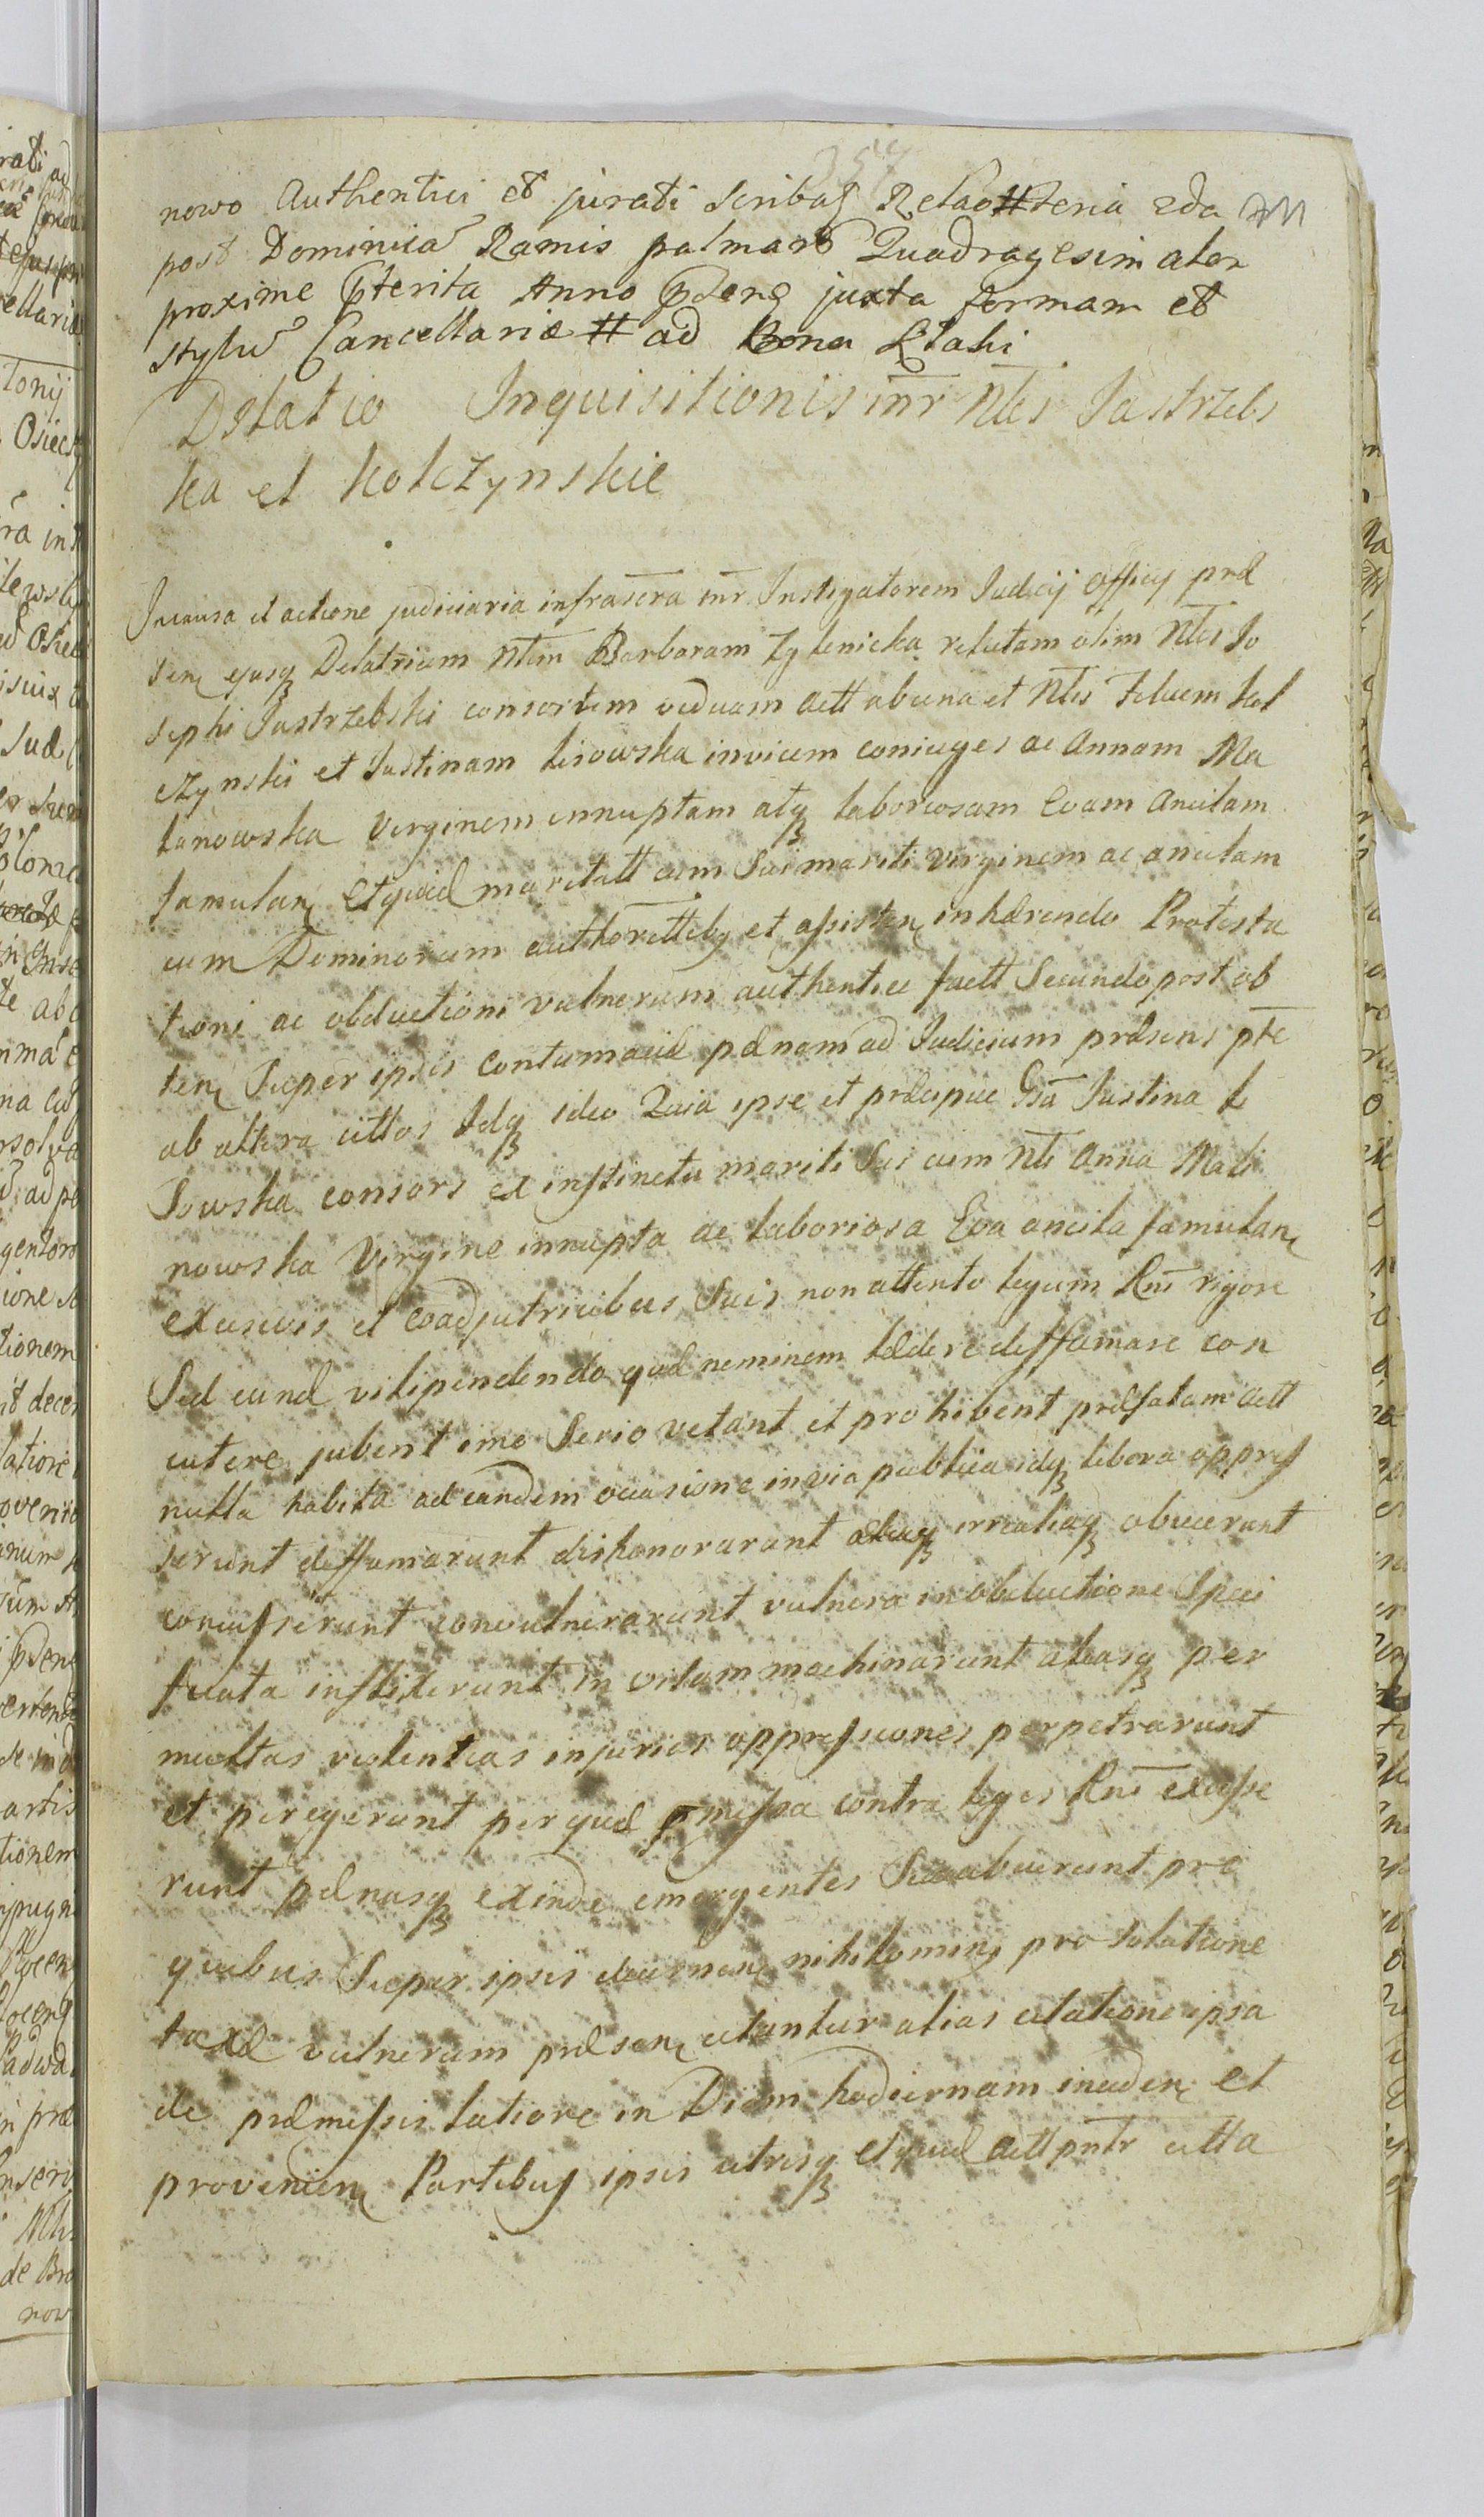 357
nowo Authentici et jurati Scribas Relao # feria 2da
post Dominica Ramis palmar Quadragesimaler
proxime pterita Anno pdene juxta formam et
stylu Cancellariæ # ad Bona Ktaki
Dilatio Inquisitionis inr Nles Jastrzebs
ka et Kolczynskie
In causa et actione judiciaria infrascra inr Instigatorem Judicij Officij præ
senq ejusq Delatricem Nlem Barbaram Zylenicka relictam olim Nlis Jo
sephi Jastrzebski consortem viduam actt ab una et Nles Felicem Kol
czynski et Justinam Lisowska invicem coniuges ac Annam Ma
lanowska Virginem innuptam atq laboriosam Evam Ancilam
famulanq Et quid maritatt cum Sui mariti virginem ac ancilam
cum Dominorum authorittbq et assistenq inhærendo Protesta
tioni ac obductioni vulnerum authentice factt Secundo post ob
tenq Super ipsis contumaciæ pænam ad Judicium præsens pte
ab altera cittos Idq ideo Quia ipse et præcipue Gsa Justina Li
sowska consors ex instinctu mariti Sui cum Nli Anna Mali
nowska Virgine innupta ac laboriosa Eva ancila famulanq
excusivis et coadjutricibus Suis non attento legum Rni rigore
Sed eund vilipendendo quæ neminem lædere deffamare con
cutere jubent imo Serio vetant et prohibent præfatam actt
nulla habita ad eandem occasione in via publica idq libera oppres
serunt deffamarunt dishonorarunt aliaq irrealiaq obiecerunt
concusserunt convulnerarunt vulnera in obductione Speci
ficata inflixerunt in vitam machinarunt aliasq per
multas violentias injurias oppressiones perpetrarunt
et peregerunt per quæ pmissa contra leges Rni excesse
runt pænasq exinde emergentes Succubuerunt pro
quibus Super ipsis decernenq nihilominq pro solutione
taxæ vulnerum præsenq citantur alias citatione ipsa
de præmissis latiore in Diem hodiernam incidenq et
provenienq Partibus ipsis utrisq et quid actt pntr citta